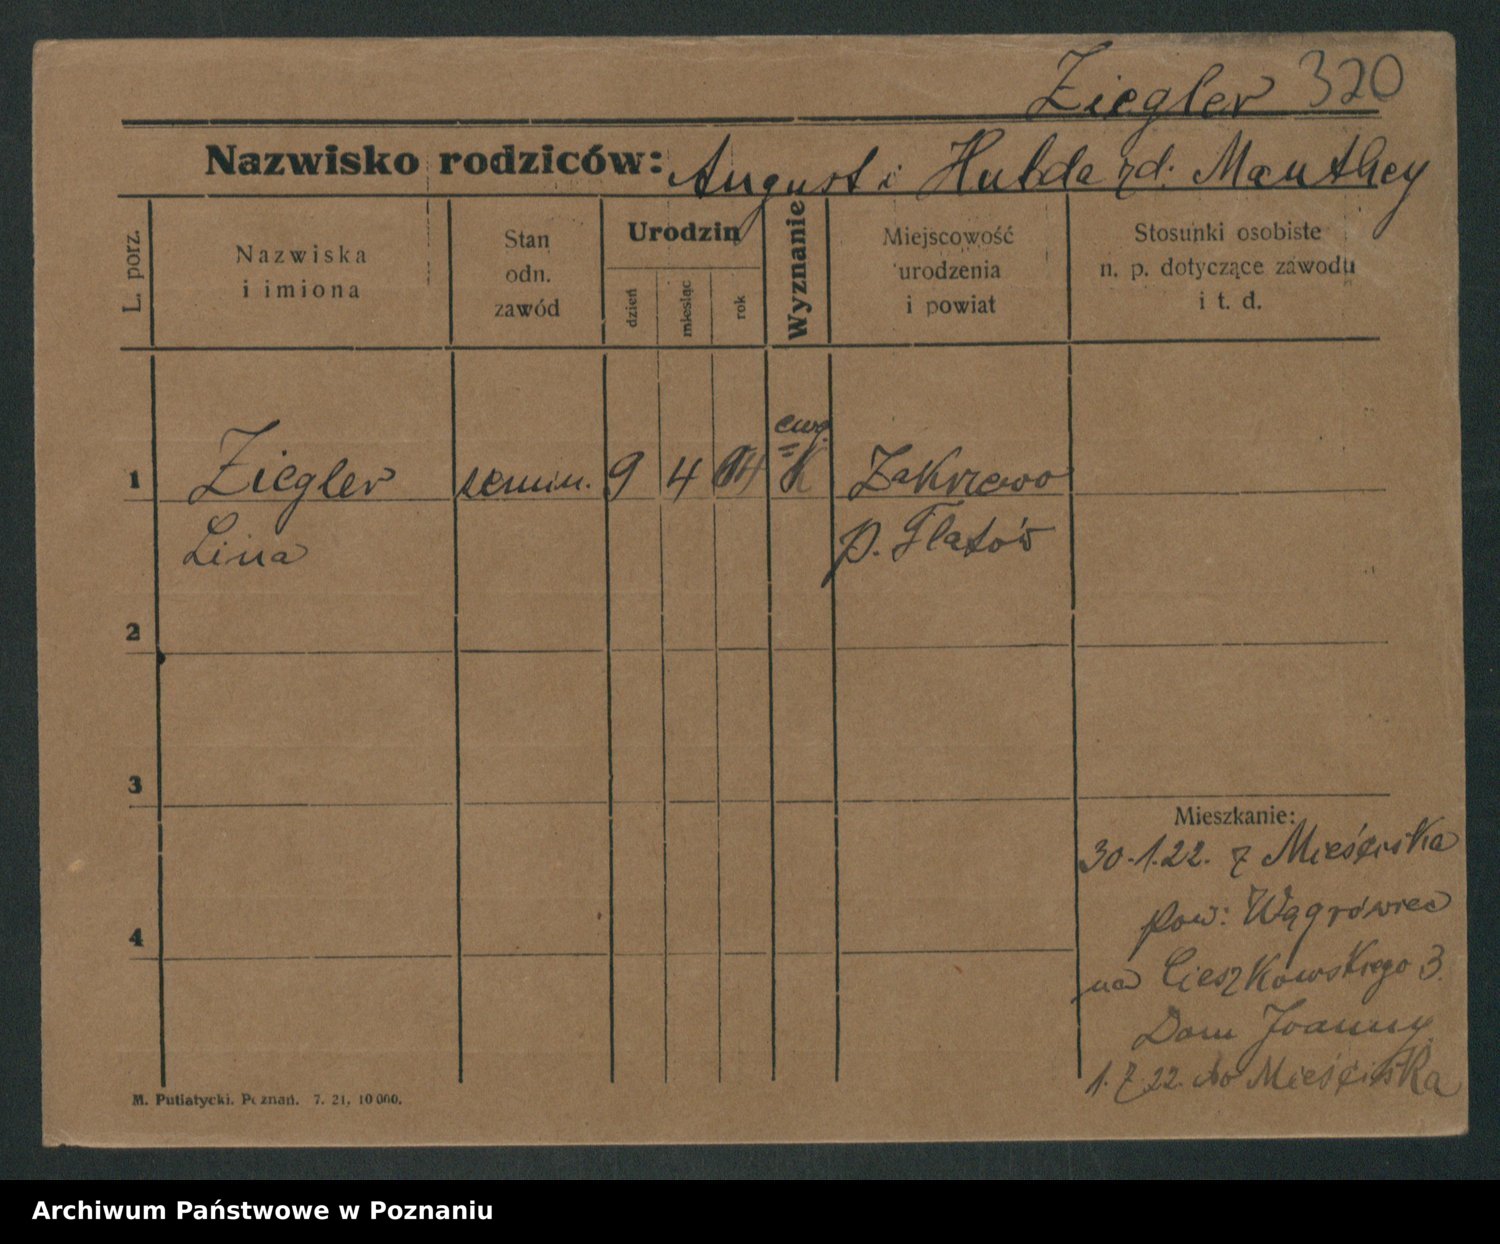 Ziegler 320
Nazwisko rodziców: August i Hulda rd. Manthey
L. porz.
Nazwiska
i imiona
Stan
odn.
zawód
Urodzin
dzień
miesiąc
rok
Wyznanie
Miejscowość
urodzenia
i powiat
Stosunki osobiste
n. p. dotyczące zawodu
i t. d.
ewg.
1 Ziegler semin. 9 4 K Zakrzewo
Lina p. Flatów
2
3
Mieszkanie:
30.1.22. z Mieściska
pow: Wągrówiec
4
na Cieszkowskiego 3.
Dom Joanny
1.7.22. do Mieściska
M. Putiatycki. Poznań. 7. 21. 10 000.
Archiwum Państwowe w Poznaniu